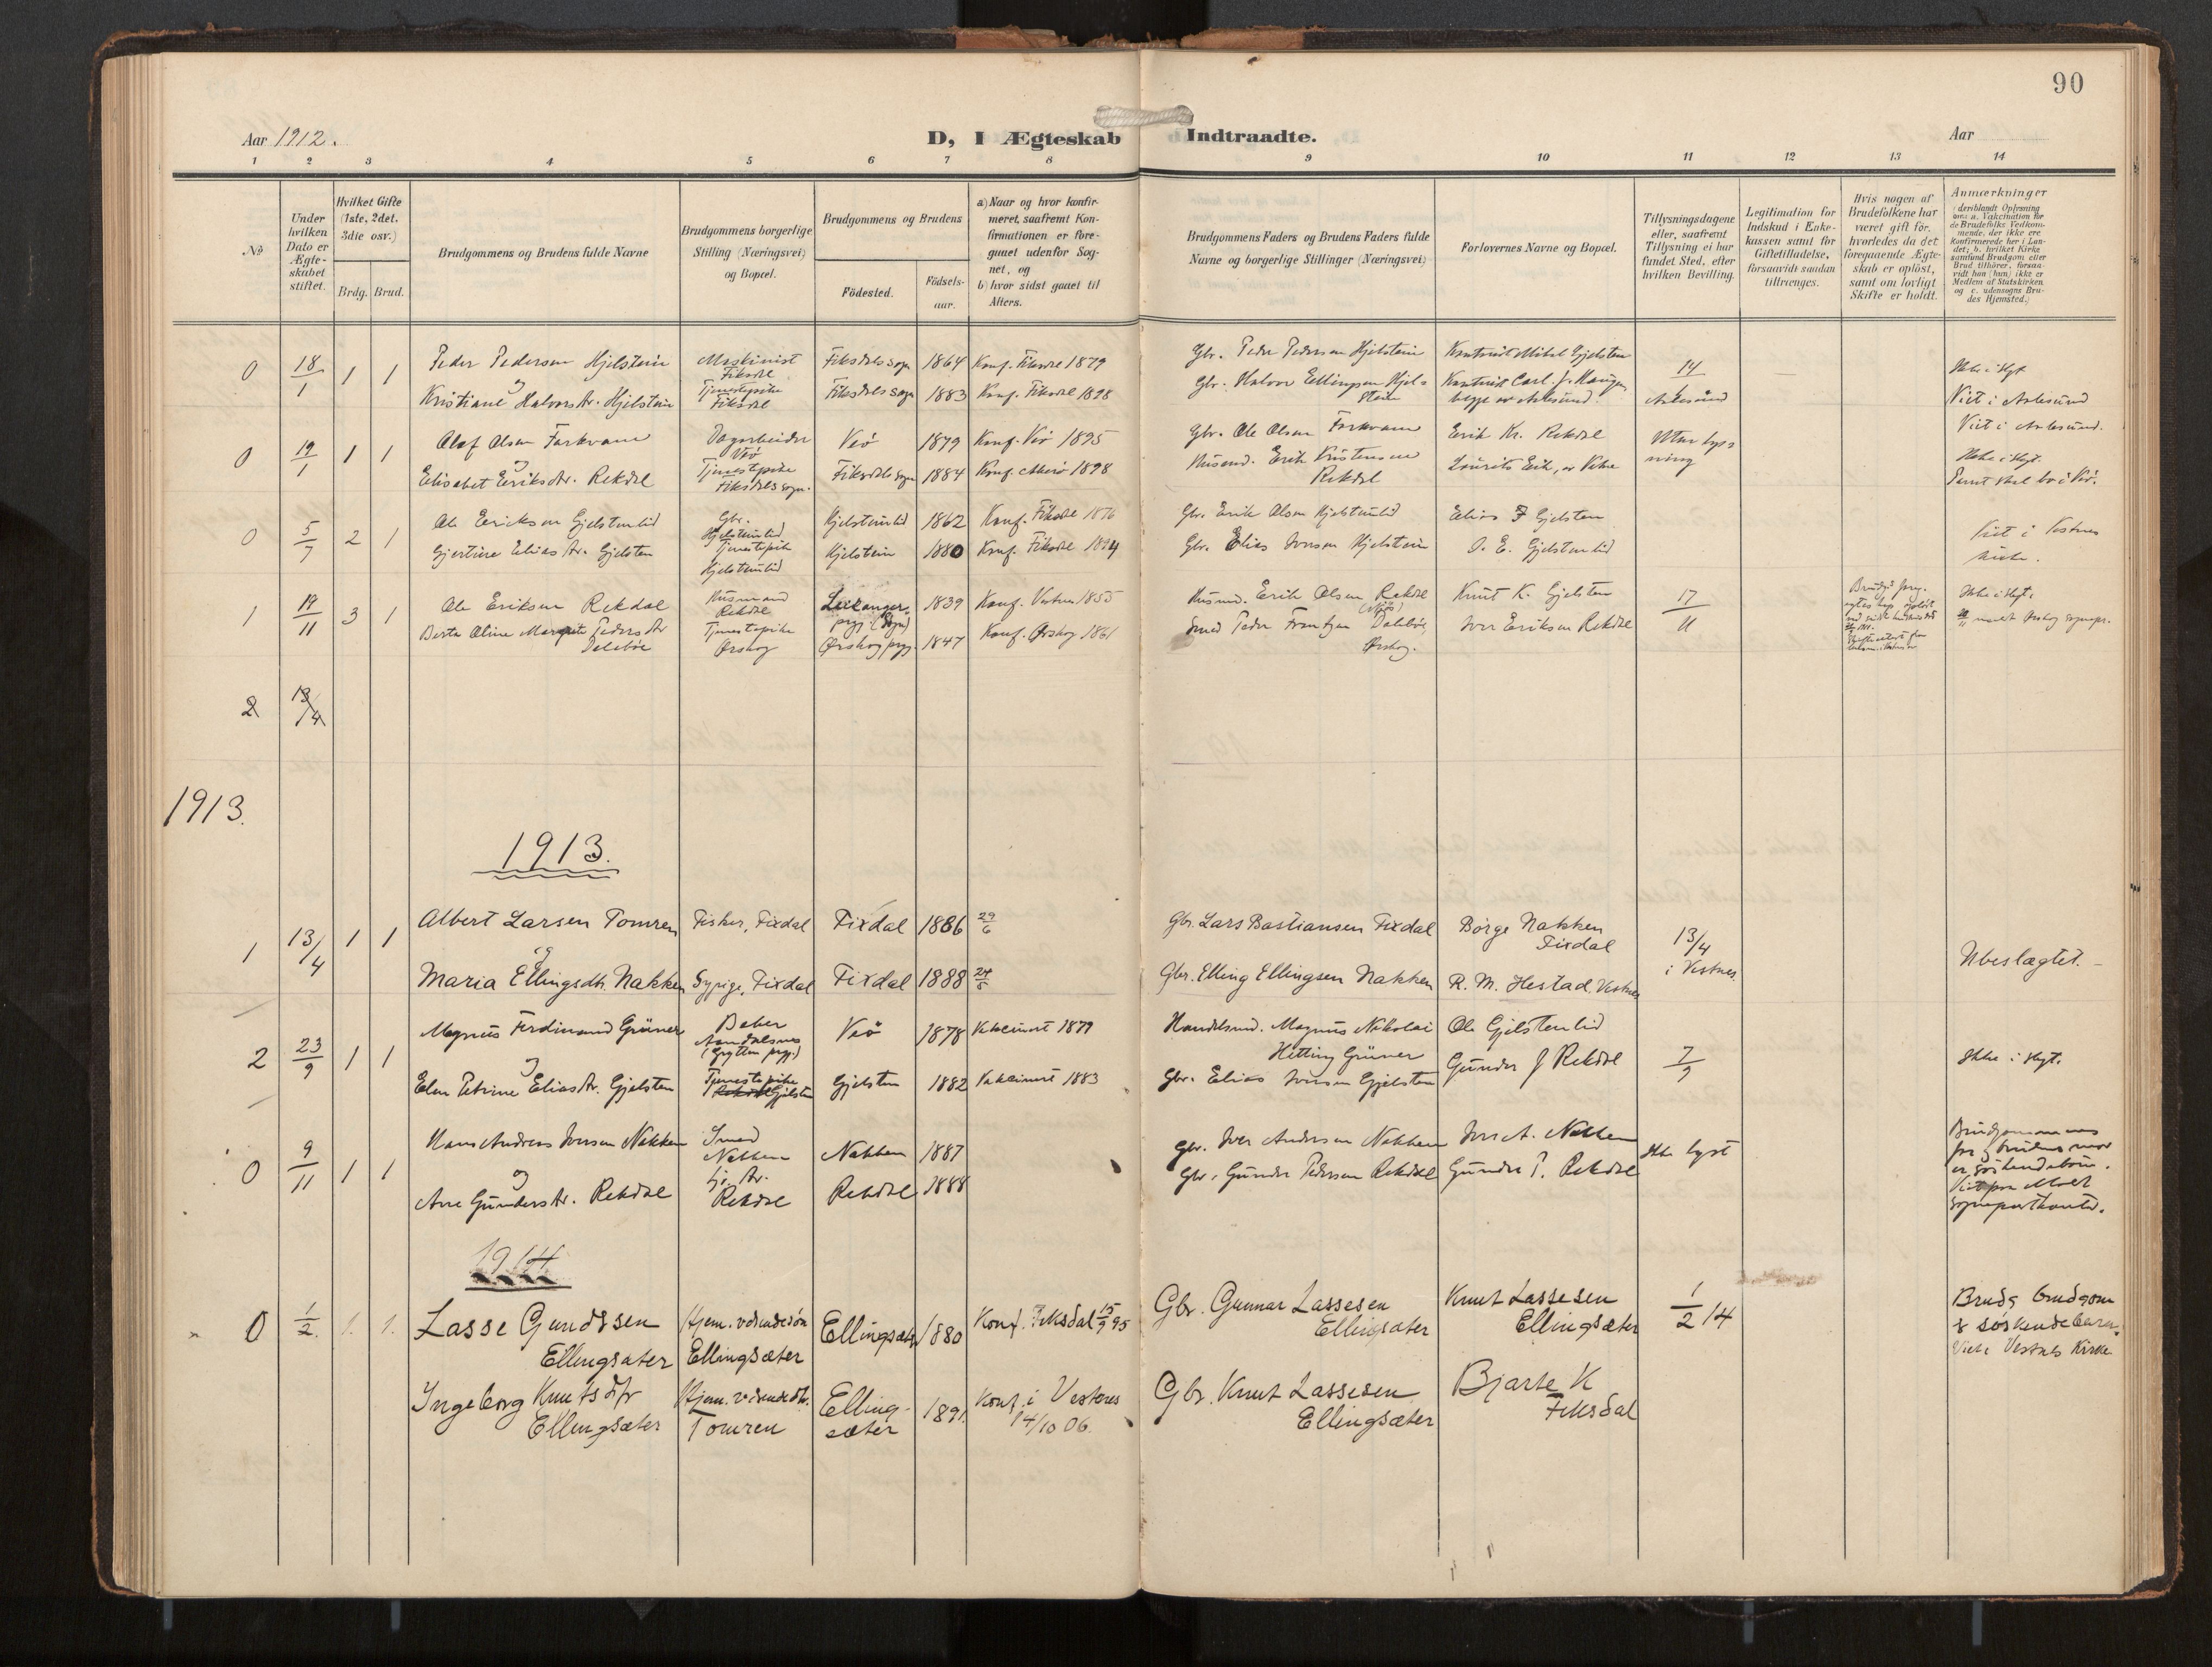 90
Aar 1912.
D, I Ægteskab Indtraadte.
Aar
1 2 3 4 5 6 7 8 9 10 11 12 13 14
No
Under hvilken Dato er Ægteskabet stiftet.
Hvilket Gifte (1ste, 2det, 3die osv.)
Brdg. Brud.
Brudgommens og Brudens fulde Navne
Brudgommens borgerlige Stilling (Næringsvei) og Bopæl.
Brudgommens og Brudens
Födested.
Födselsaar.
a) Naar og hvor konfirmeret, saafremt Konfirmationen er foregaaet udenfor Sognet, og
b) hvor sidst gaaet til Alters.
Brudgommens Faders og Brudens Faders fulde Navne og borgerlige Stillinger (Næringsvei)
Forlovernes Navne og Bopæl.
Tillysningsdagene eller, saafremt Tillysning ei har fundet Sted, efter hvilken Bevilling.
Legitimation for Indskud i Enkekassen samt for Giftetilladelse, forsaavidt saadan tiltrænges.
Hvis nogen af Brudefolkene har været gift för, hvorledes da det foregaaende Ægteskab er oplöst, samt om lovligt Skifte er holdt.
Anmærkninger (deriblandt Oplysning om: a. Vakcination for de Brudefolks Vedkommende, der ikke ere Konfirmerede her i Landet; b. hvilket Kirkesamfund Brudgom eller Brud tilhörer, forsaavidt han (hun) ikke er Medlem af Statskirken, og c. udensogns Brudes Hjemsted.)
0 18/1 1 1 Peder Pedersen Hjelstein Maskinist Fiksdal Fiksdals sogn 1864 Konf. Fiksdal 1879 Gbr. Peder Pedersen Hjelstein 14 Ikke i slegt
og
Kristiane Halvorsdtr. Hjelstein Tjenestepike Fiksdal Fiksdals sogn 1883 Konf. Fiksdal 1898 Gbr. Halvor Ellingsen Hjelstein Aalesund Viet i Aalesund
0 19/1 1 1 Olaf Olsen Farkvam Dagarbeider Veö Veö 1879 Konf. Veö 1895 Gbr. Ole Olsen Farkvam Erik Kr. Rekdal Uten lysning Viet i Aalesund.
og
Elisabet Eriksdtr. Rekdal Tjenestepike Fiksdals sogn. Fiksdals sogn 1884 1898 Husmd. Erik Kristensen Rekdal Ikke i slegt.
0 5/7 2 1 Ole Eriksen Gjelstenlid Gbr. Hjelsteinlid Hjelsteinlid 1862 Konf. Fiksdal 1876 Gbr. Erik Olsen Hjelsteinlid Elias Gjelsten Viet i Vestnes kirke.
Gjertine Eliasdtr. Gjelsten Tjenestepike Hjelsteinlid Hjelstein 1880 Konf. Fiksdal 1894 Gbr. Elias Iversen Hjelstein O. E. Gjelstenlid
1 19/11 3 1 Ole Eriksen Rekdal Husmand Rekdal 1839 Konf. Vestnes 1855 Husmd. Erik Olsen Rekdal Knut K. Gjelsten 17/11 Ikke i slegt.
Berte Oline Margrete Pedersdtr. Tjenestepike Ørskog Ørskog prgj. 1847 Konf. Ørskog 1861 Smed Peder Ørskog. Iver Eriksen Rekdal
2 13/4
1913.
1913.
1 13/4 1 1 Albert Larsen Tomren Fisker, Fixdal Fixdal 1886 29/6 Gbr. Lars Bastiansen Fixdal Børge Nakken Fixdal 13/4 i Vestnes Ubeslægtet.
og
Maria Ellingsdtr. Nakken Sypige, Fixdal Fixdal 1888 24/5 Gbr. Elling Ellingsen Nakken R. M. Hestad. Vestnes
2 23/9 1 1 Magnus Ferdinand Grüner Beker Aandalsnes (Grytten prgj.) Veö 1878 Vakcinert 1879 Handelsmd. Magnus Nikolai Hetting Grüner Ole Gjelstenlid 7/9 Ikke i slegt.
og
Elen Petrine Eliasdtr. Gjelsten Tjenestepike Rekdal Gjelsten Gjelsten 1882 Vakcinert 1883 Gbr. Elias Iversen Gjelsten Gunder J Rekdal
0 9/11 1 1 Hans Andreas Iversen Nakken Smed Nakken Nakken 1887 Gbr. Iver Andersen Nakken Iver A. Nakken Ikke lyst Brudgommens far og brudens mor er söskendebörn.
og
Ane Gundersdtr. Rekdal Rekdal Rekdal 1888 Gbr. Gunder Pedersen Rekdal Gunder P. Rekdal
1914
0 1/2. 1. 1. Lasse Gundssen Ellingsæter Hjem. værende søn Ellingsæter Ellingsæter 1880 Konf. Fiksdal 15/9 95 Gbr. Gunnar Lassesen Ellingsæter Knut Lassesen Ellingsæter 1/2 14 Brud & brudgom & søskendebarn. Viet i Vestnes Kirke
Ingeborg Knutsdtr Ellingsæter Hjem. værende dtr. Tomren Ellingsæter 1891. Konf. i Vestnes 14/10 06. Gbr. Knut Lassesen Ellingsæter Bjarte K Fiksdal